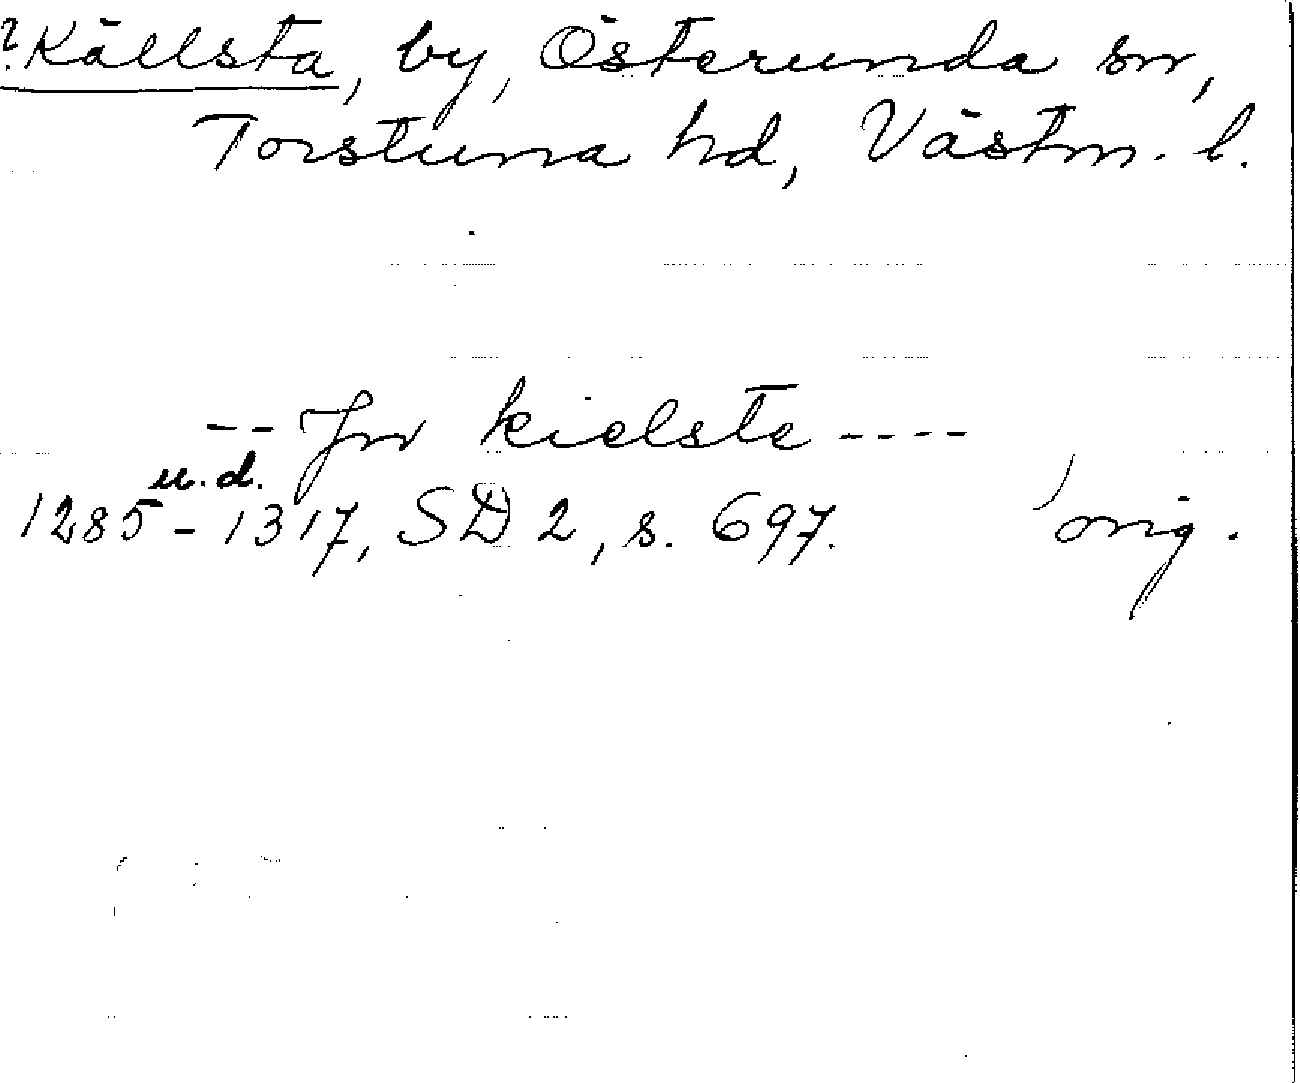 ? Källsta, by, Österunda sn,
Torstuna hd, Västm. l.
-- Jn kielste ----
u.d.
1285-1317, SD 2, s. 697. orig.